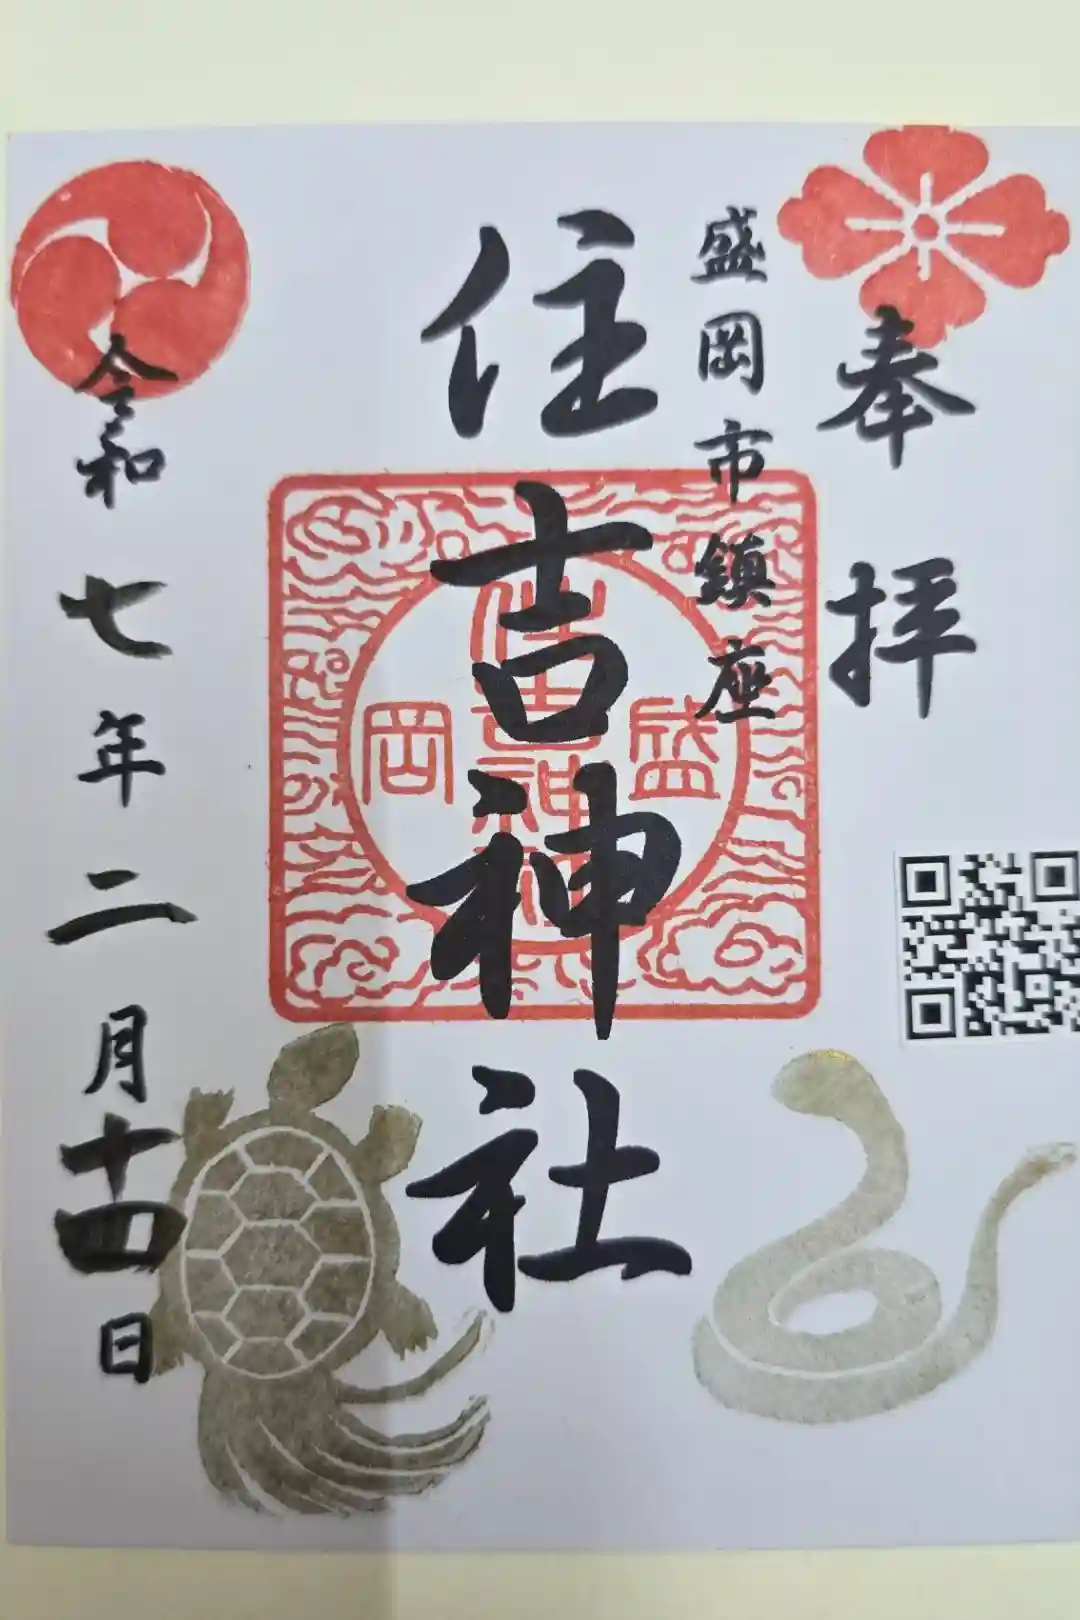 奉拝
盛岡市鎮座
住吉神社
盛岡
住吉神社
令和七年二月十四日